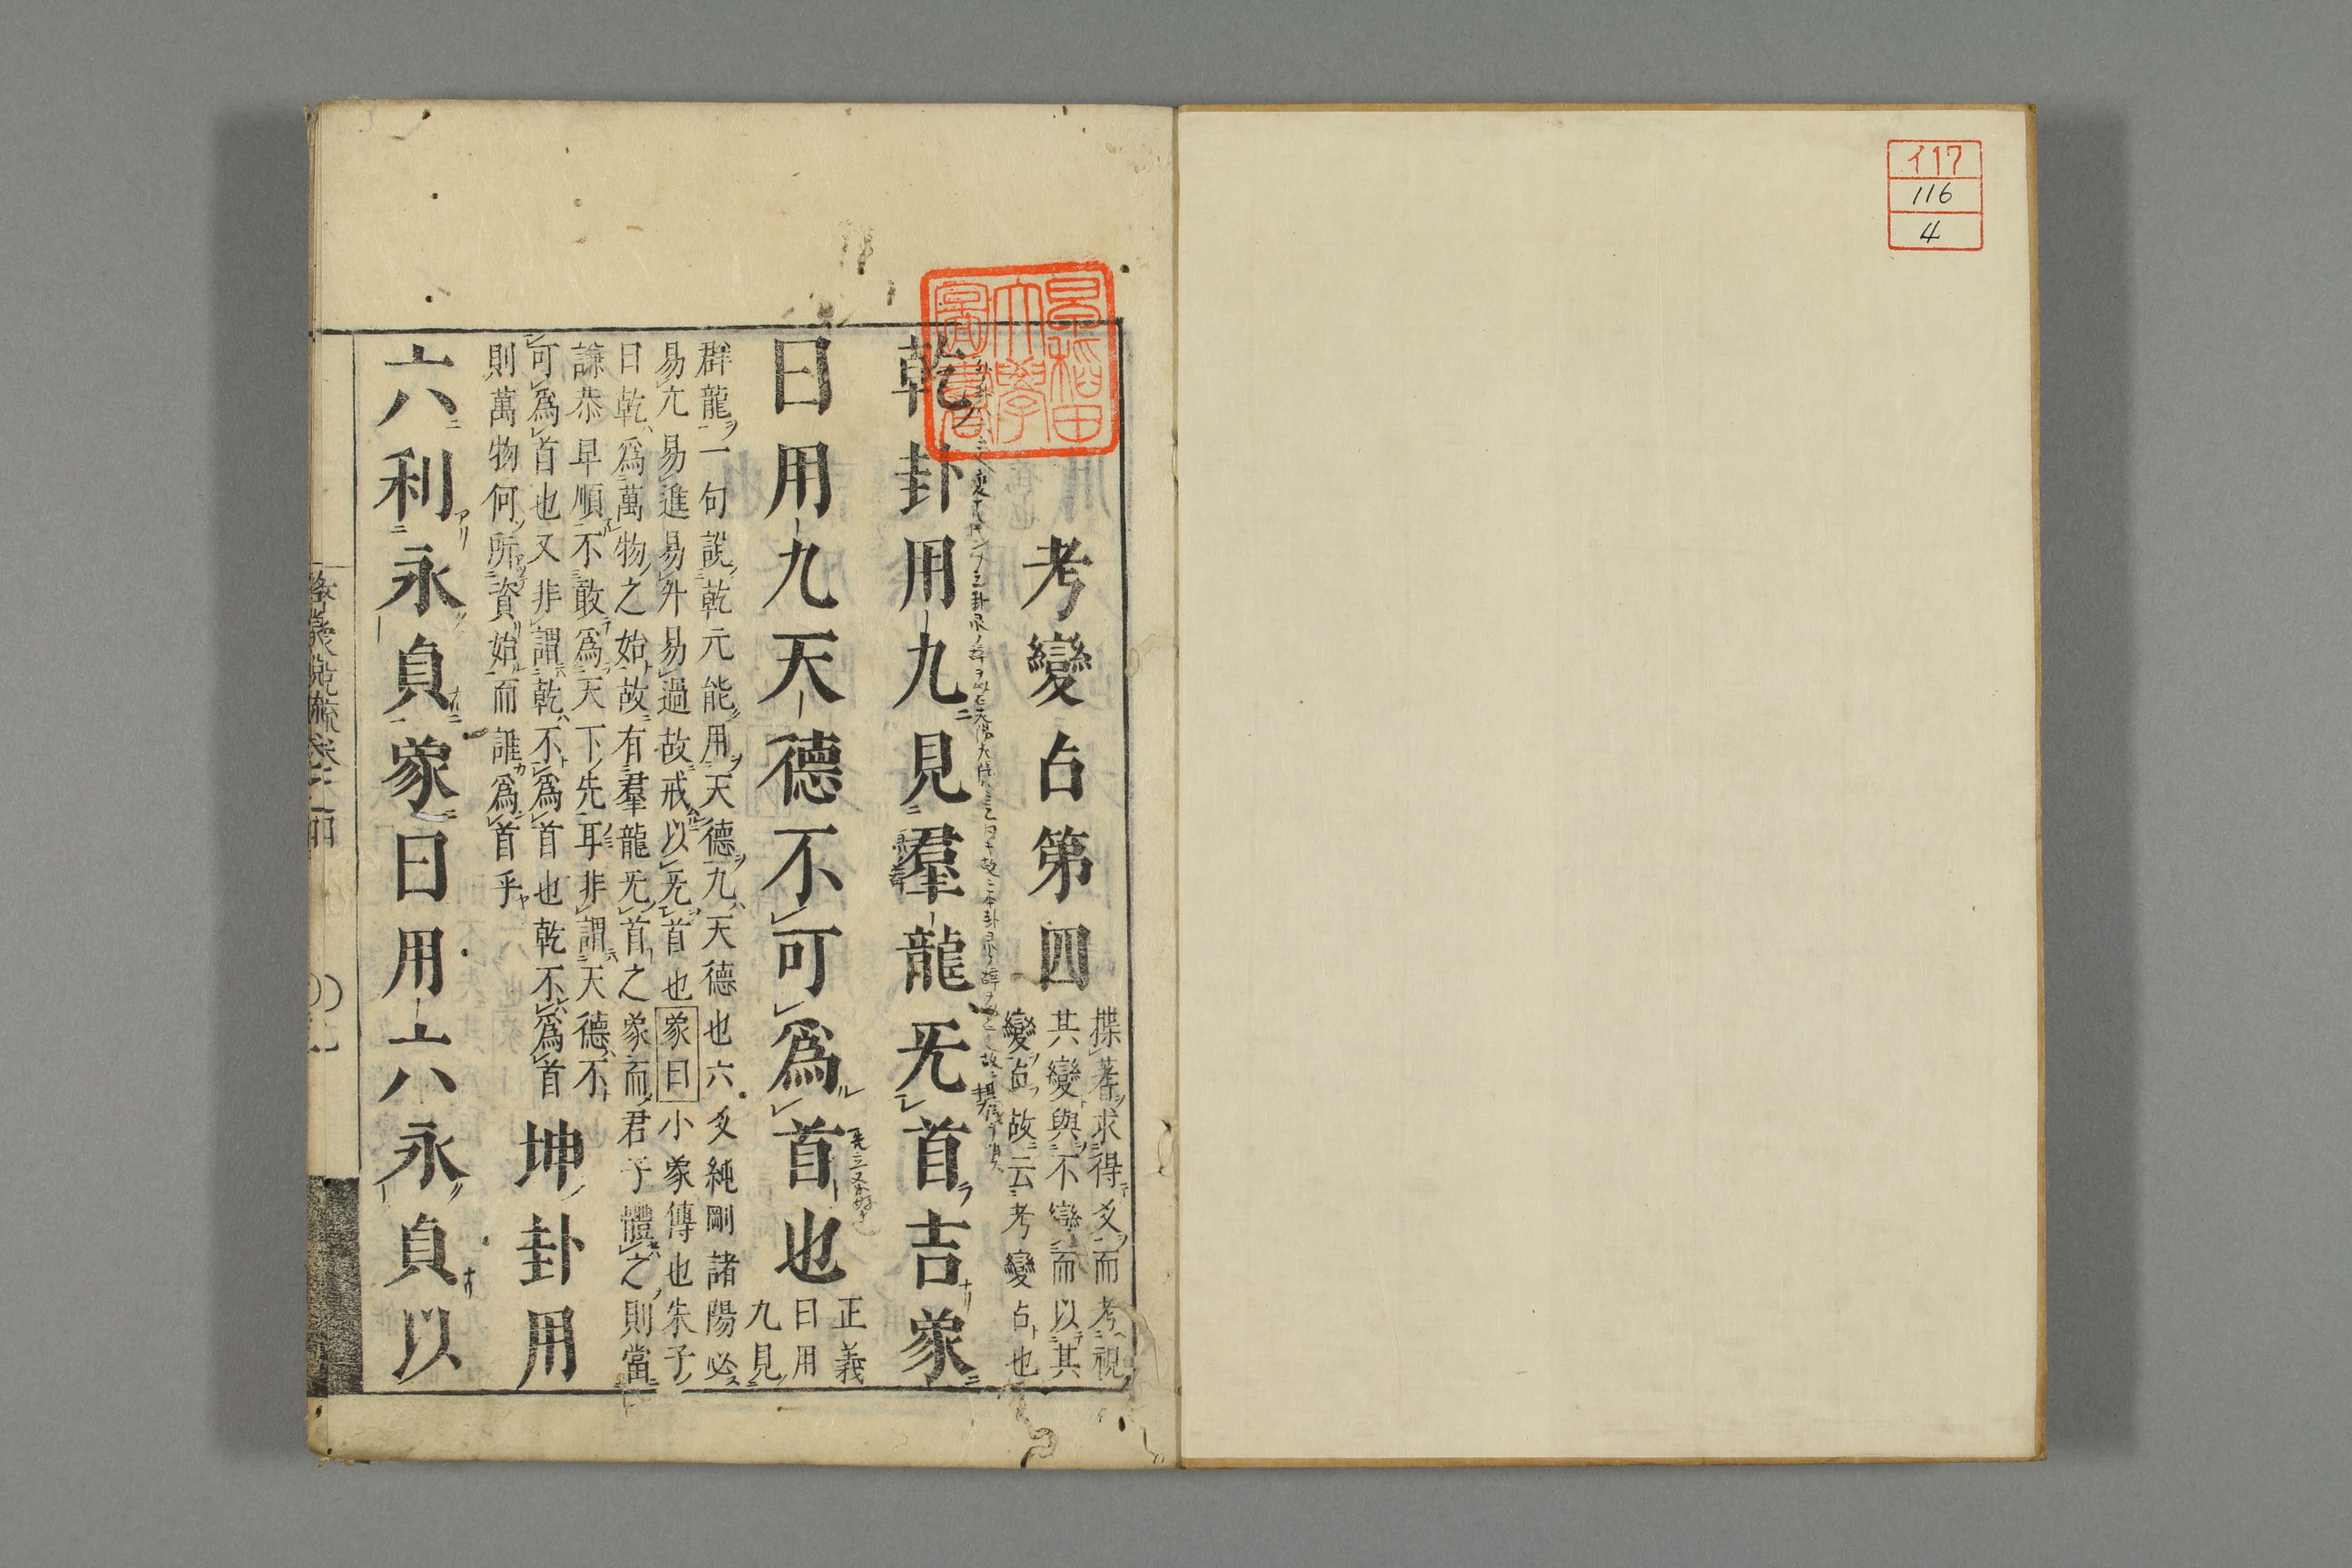 イ17
116
4
早稲田
大學
圖書
考變占第四
揲蓍求得爻而考視
其變與不變而以其
變占故云考變占也
乾卦用九見羣龍无首吉象
曰用九天德不可爲首也
正義
曰用
九見
群龍一句說乾元能用天德九天德也六爻純剛諸陽必
易亢易進易外易過故戒以无首也象曰小象傳也朱子
曰乾爲萬物之始故有羣龍无首之象而君子體之則當
謙恭卑順不敢爲天下先耳非謂天德不
可爲首也又非謂乾不爲首也乾不爲首
則萬物何所資始而誰爲首乎
坤卦用
六利永貞象曰用六永貞以